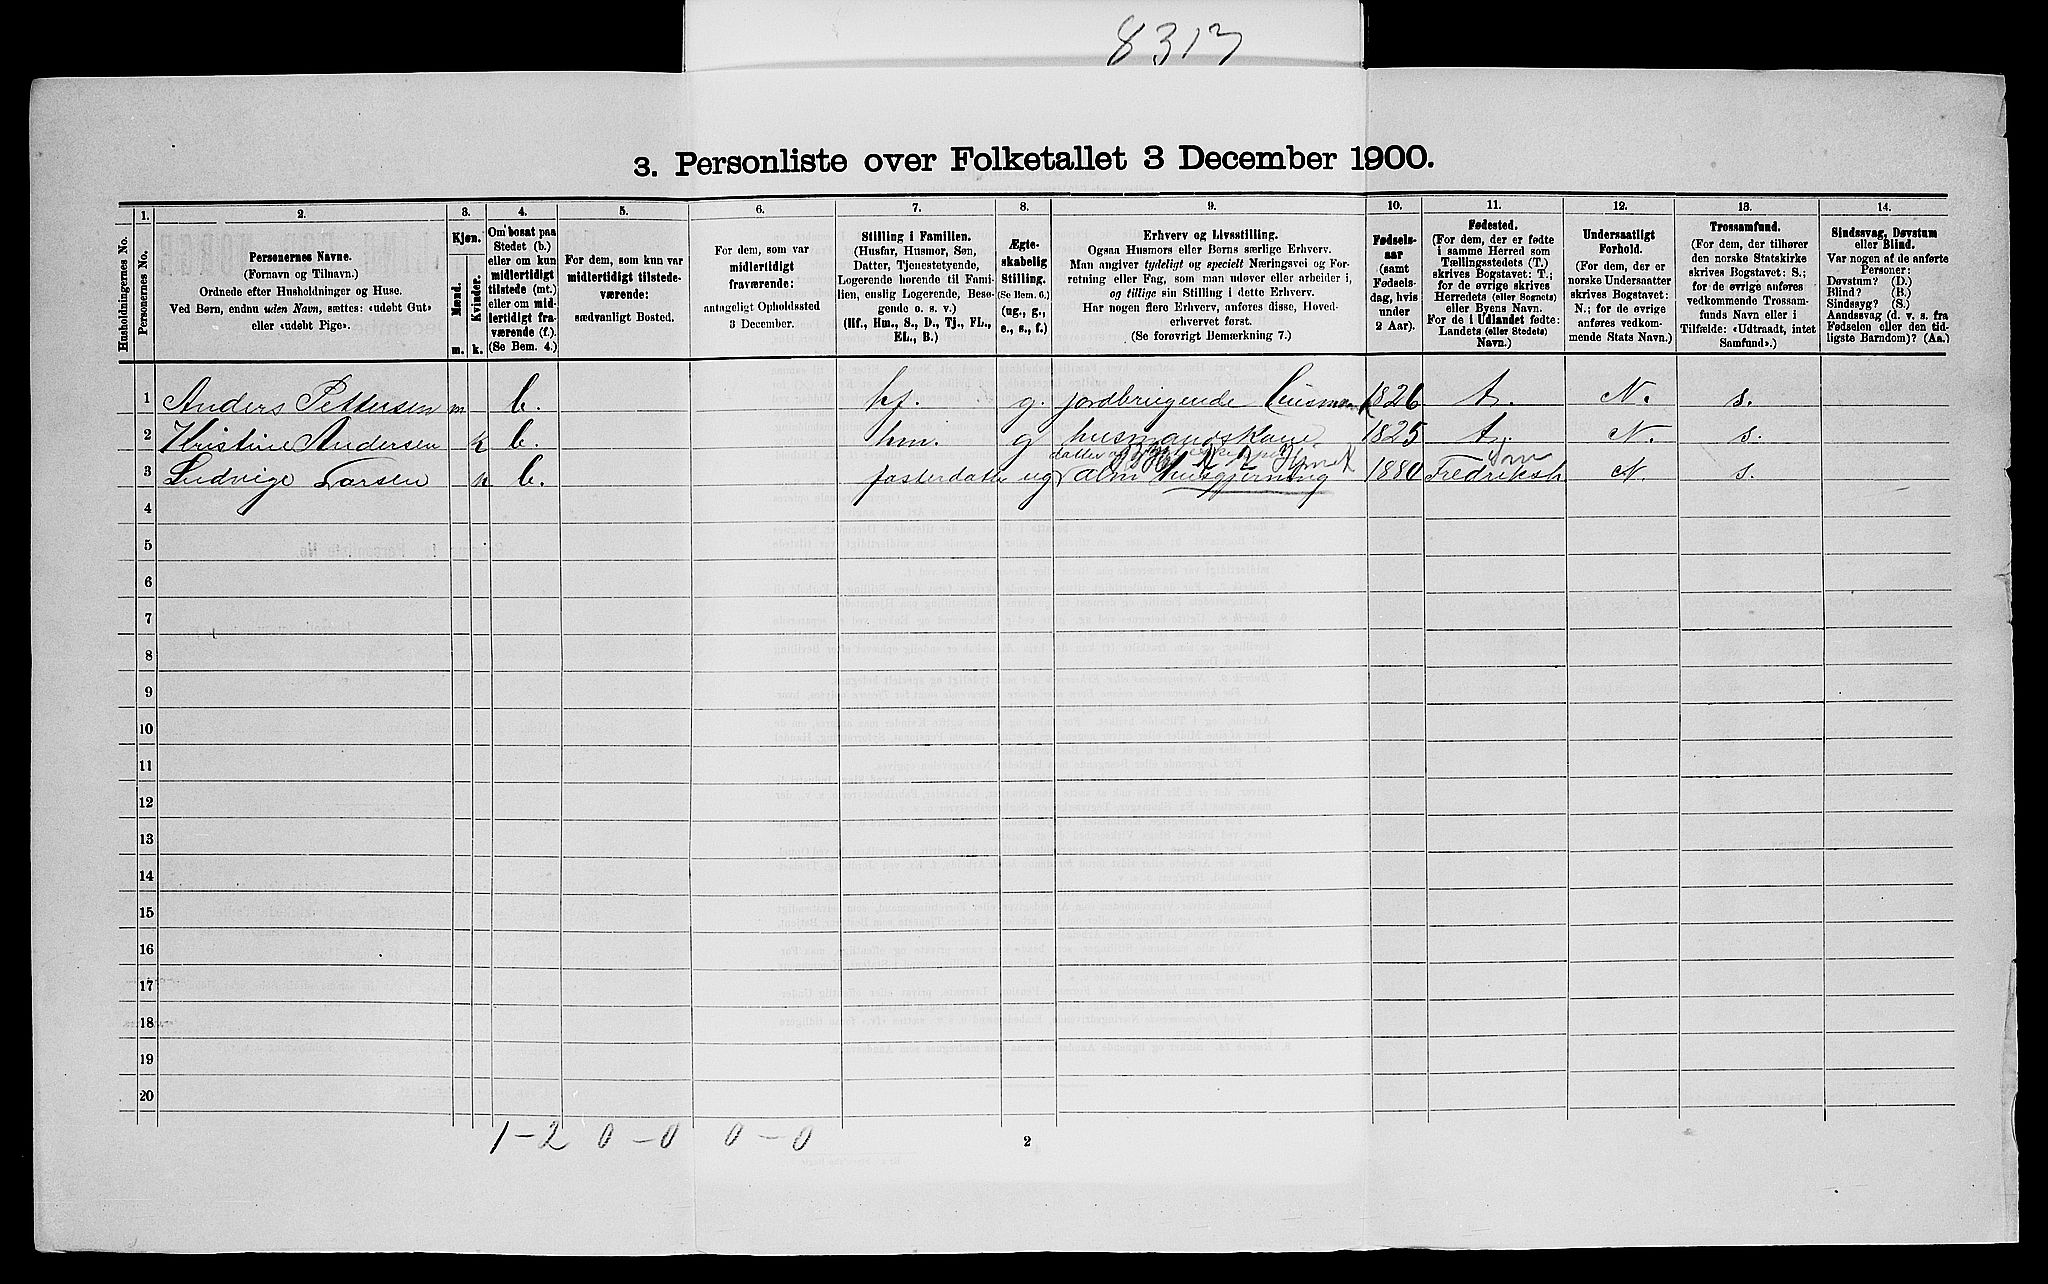 8313
3. Personliste over Folketallet 3 December 1900.
1. 2. 3. 4. 5. 6. 7. 8. 9. 10. 11. 12. 13. 14.
Husholdningernes No.
Personernes No.
Personernes Navne.
(Fornavn og Tilnavn.)
Ordnede efter Husholdninger og Huse.
Ved Børn, endnu uden Navn, sættes: «udøbt Gut»
eller «udøbt Pige».
Kjøn.
Mænd.
Kvinder.
m. k.
Om bosat paa
Stedet (b.)
eller om kun
midlertidigt
tilstede (mt.)
eller om mid-
lertidigt fra-
værende (f.).
(Se Bem. 4.)
For dem, som kun var
midlertidigt tilstede-
værende:
sædvanligt Bosted.
For dem, som var
midlertidigt
fraværende:
antageligt Opholdssted
3 December.
Stilling i Familien.
(Husfar, Husmor, Søn,
Datter, Tjenestetyende,
Logerende hørende til Fami-
lien, enslig Logerende, Besø-
gende o. s. v.)
(Hf., Hm., S., D., Tj., FL.,
EL., B.)
Ægte-
skabelig
Stilling.
(Se Bem. 6.)
(ug., g.,
e., s., f.)
Erhverv og Livsstilling.
Ogsaa Husmors eller Børns særlige Erhverv.
Man angiver tydeligt og specielt Næringsvei og For-
retning eller Fag, som man udøver eller arbeider i,
og tillige sin Stilling i dette Erhverv.
Har nogen flere Erhverv, anføres disse, Hoved-
erhvervet først.
(Se forøvrigt Bemærkning 7.)
Fødsels-
aar
(samt
Fødsels-
dag, hvis
under
2 Aar).
Fødested.
(For dem, der er fødte
i samme Herred som
Tællingsstedets (T.)
skrives Bogstavet: T.;
for de øvrige skrives
Herredets (eller Sognets)
eller Byens Navn.
For de i Udlandet fødte:
Landets (eller Stedets)
Navn.)
Undersaatligt
Forhold.
(For dem, der er
norske Undersaatter
skrives Bogstavet:
N.; for de øvrige
anføres vedkom-
mende Stats Navn.)
Trossamfund.
(For dem, der tilhører
den norske Statskirke
skrives Bogstavet: S.;
for de øvrige anføres
vedkommende Trossam-
funds Navn eller i
Tilfælde: «Udtraadt, intet
Samfund».)
Sindssvag, Døvstum
eller Blind.
Var nogen af de anførte
Personer:
Døvstum? (D.)
Blind? (B.)
Sindssyg? (S.)
Aandssvag (d. v. s. fra
Fødselen eller den tid-
ligste Barndom)? (Aa.)
1 Anders Pettersen m b. hf. g. jordbrugende 1826 t. N. s.
2 Kristine Andersen k b. hm. g husmandskone 1825 t. N. s.
3 Ludvige Larsen k b. fosterdatter ug alm husgjerning 1880 Fredriksh N. s.
4
5
6
7
8
9
10
11
12
13
14
15
16
17
18
19
20
1-2 0-0 0-0
2